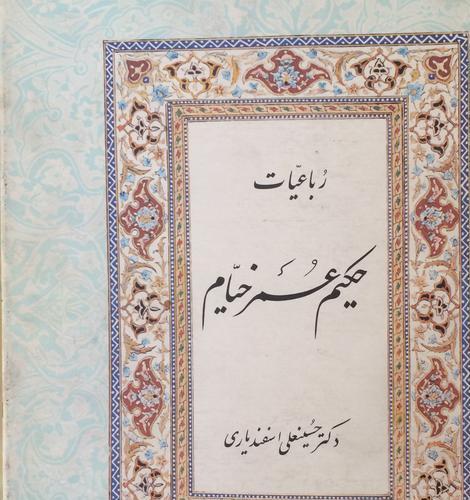 رُباعیّات
حکیم عُمر خیّام
دکتر حسینعلی اسفندیاری